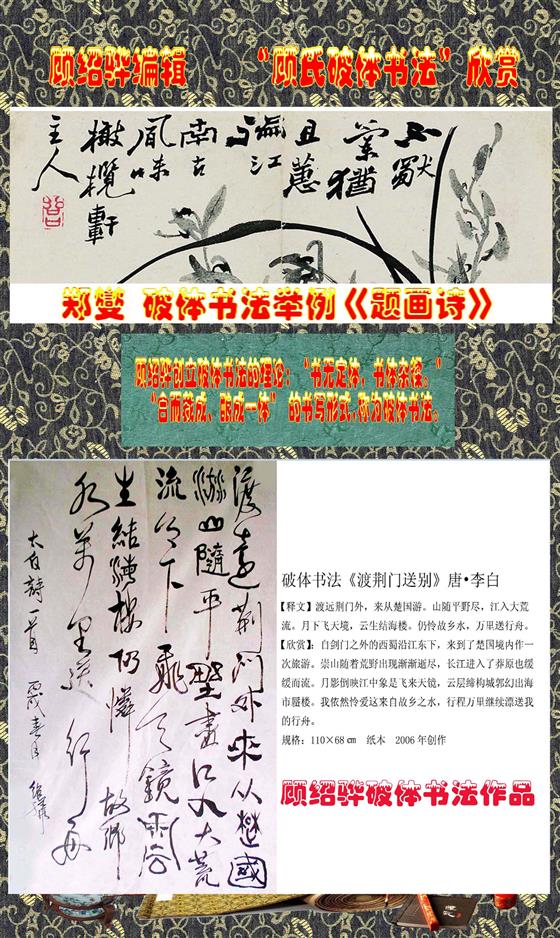 顾绍骅编辑 “顾氏破体书法”欣赏
且蕙
風味
橄欖軒
主人
郑燮 破体书法举例《题画诗》
顾绍骅创立破体书法的理论：“书无定体，书体杂糅。”
“合而裁成、融成一体” 的书写形式，称为破体书法。
渡遠荆门外来从楚國
游山隨平野盡江入大荒
流月下飛天鏡雲
生結海楼仍憐故鄉
水萬里送行舟
太白詩一首 丙戌春月 绍骅
破体书法《渡荆门送别》唐•李白
【释文】渡远荆门外，来从楚国游。山随平野尽，江入大荒
流。月下飞天境，云生结海楼。仍怜故乡水，万里送行舟。
【欣赏】：自剑门之外的西蜀沿江东下，来到了楚国境内作一
次旅游。崇山随着荒野出现渐渐逝尽，长江进入了莽原也缓
缓而流。月影倒映江中象是飞来天镜，云层缔构城郭幻出海
市蜃楼。我依然怜爱这来自故乡之水，行程万里继续漂送我
的行舟。
规格：110×68㎝ 纸本 2006年创作
顾绍骅破体书法作品